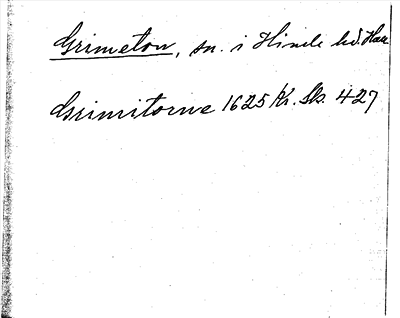 Grimeton, sn. i Himle hd. Hall
Grimitorne 1625 Kr. Sk. 427